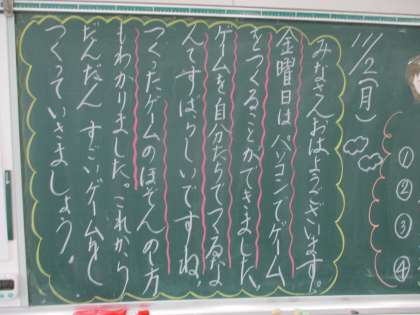 11/2(月)
みなさんおはようございます。
金曜日はパソコンでゲーム
をつくることができました。
ゲームを自分たちでつくるな
んてすばらしいですね。
つくったゲームのほぞんのし方
もわかりました。これから
だんだんすごいゲームを
つくっていきましょう。
①
②
③
④